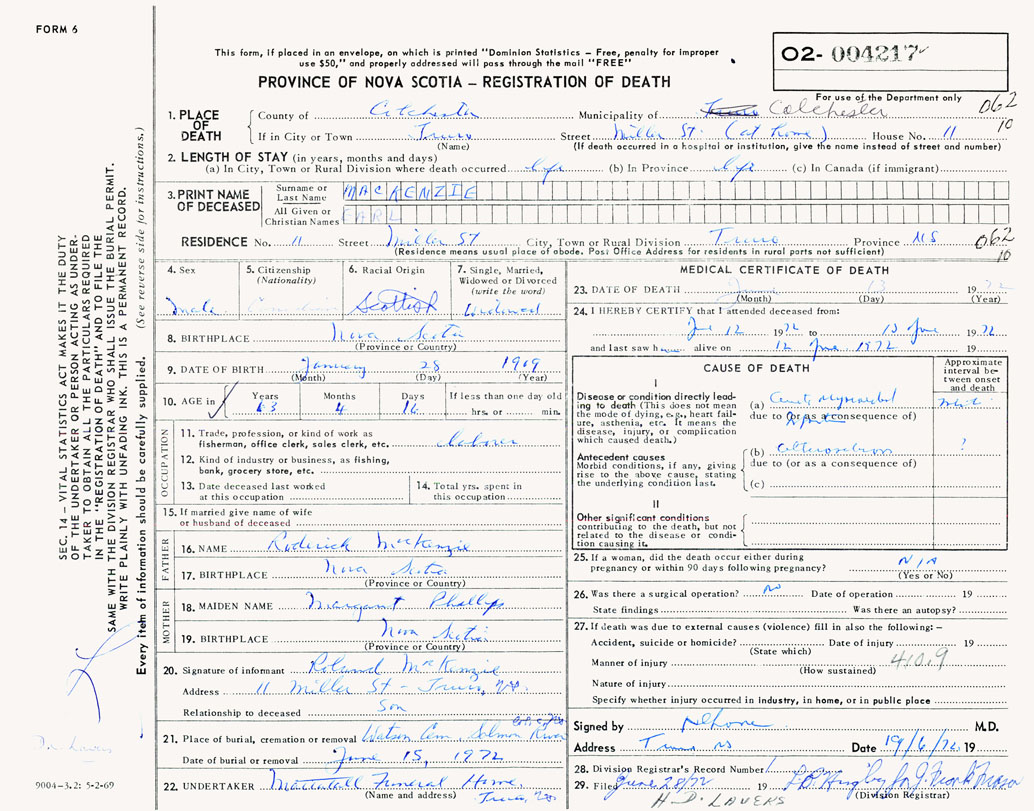 FORM 6
This form, if placed in an envelope, on which is printed "Dominion Statistics – Free, penalty for improper
use $50," and properly addressed will pass through the mail "FREE"
PROVINCE OF NOVA SCOTIA – REGISTRATION OF DEATH
O2- 004217
For use of the Department only
062
10
1. PLACE OF DEATH
County of Colchester Municipality of Truro Colchester
If in City or Town Truro Street Miller St. (at home) House No. 11
(Name) (If death occurred in a hospital or institution, give the name instead of street and number)
2. LENGTH OF STAY (in years, months and days)
(a) In City, Town or Rural Division where death occurred (b) In Province (c) In Canada (if immigrant)
3. PRINT NAME OF DECEASED
Surname or Last Name MACKENZIE
All Given or Christian Names EARL
RESIDENCE No. 11 Street Miller St City, Town or Rural Division Truro Province NS
062
10
(Residence means usual place of abode. Post Office Address for residents in rural parts not sufficient)
4. Sex
Male
5. Citizenship
(Nationality)
Canadian
6. Racial Origin
Scottish
7. Single, Married,
Widowed or Divorced
(write the word)
Widowed
8. BIRTHPLACE Nova Scotia
(Province or Country)
9. DATE OF BIRTH January 28 1909
(Month) (Day) (Year)
10. AGE in
Years Months Days If less than one day old
63 4 16 hrs. or min.
OCCUPATION
11. Trade, profession, or kind of work as
fishermen, office clerk, sales clerk, etc. Laborer
12. Kind of industry or business, as fishing,
bank, grocery store, etc.
13. Date deceased last worked
at this occupation
14. Total yrs. spent in
this occupation
15. If married give name of wife
or husband of deceased
FATHER
16. NAME Roderick MacKenzie
17. BIRTHPLACE Nova Scotia
(Province or Country)
MOTHER
18. MAIDEN NAME Margaret Phillips
19. BIRTHPLACE Nova Scotia
(Province or Country)
20. Signature of informant Roland MacKenzie
Address 11 Miller St – Truro, N.S.
Relationship to deceased Son
21. Place of burial, cremation or removal Watson Cem. Salmon River
Col. Co. N.S.
Date of burial or removal June 15, 1972
22. UNDERTAKER Mattatall Funeral Home,
(Name and address) Truro, N.S.
MEDICAL CERTIFICATE OF DEATH
23. DATE OF DEATH 13 1972
(Month) (Day) (Year)
24. I HEREBY CERTIFY that I attended deceased from:
June 12 1972 to 13 June 1972
and last saw h alive on 12 June 1972 19
CAUSE OF DEATH
Approximate
interval be-
tween onset
and death
I
Disease or condition directly lead-
ing to death (This does not
mean the mode of dying, e.g., heart fail-
ure, asthenia, etc. It means the
disease, injury, or complication
which caused death.)
(a) Acute Myocardial
due to (or as a consequence of)
Antecedent causes
Morbid conditions, if any, giving
rise to the above cause, stating
the underlying condition last.
(b) ?
due to (or as a consequence of)
(c)
II
Other significant conditions
contributing to the death, but not
related to the disease or condi-
tion causing it.
25. If a woman, did the death occur either during
pregnancy or within 90 days following pregnancy? N/A
(Yes or No)
26. Was there a surgical operation? No Date of operation 19
State findings Was there an autopsy?
27. If death was due to external causes (violence) fill in also the following: –
Accident, suicide or homicide? Date of injury 19
(State which)
Manner of injury 410.9
(How sustained)
Nature of injury
Specify whether injury occurred in industry, in home, or in public place
Signed by M.D.
Address Truro NS Date 19/6/72 19
28. Division Registrar's Record Number
29. Filed June 20/72 19
(Division Registrar)
H. D. LAVERS
SEC. 14 – VITAL STATISTICS ACT MAKES IT THE DUTY
OF THE UNDERTAKER OR PERSON ACTING AS UNDER-
TAKER TO OBTAIN ALL THE PARTICULARS REQUIRED
IN THE "REGISTRATION OF DEATH" AND TO FILE THE
SAME WITH THE DIVISION REGISTRAR WHO SHALL ISSUE THE BURIAL PERMIT.
WRITE PLAINLY WITH UNFADING INK. THIS IS A PERMANENT RECORD.
Every item of information should be carefully supplied. (See reverse side for instructions.)
9004-3.2: 5-2-69